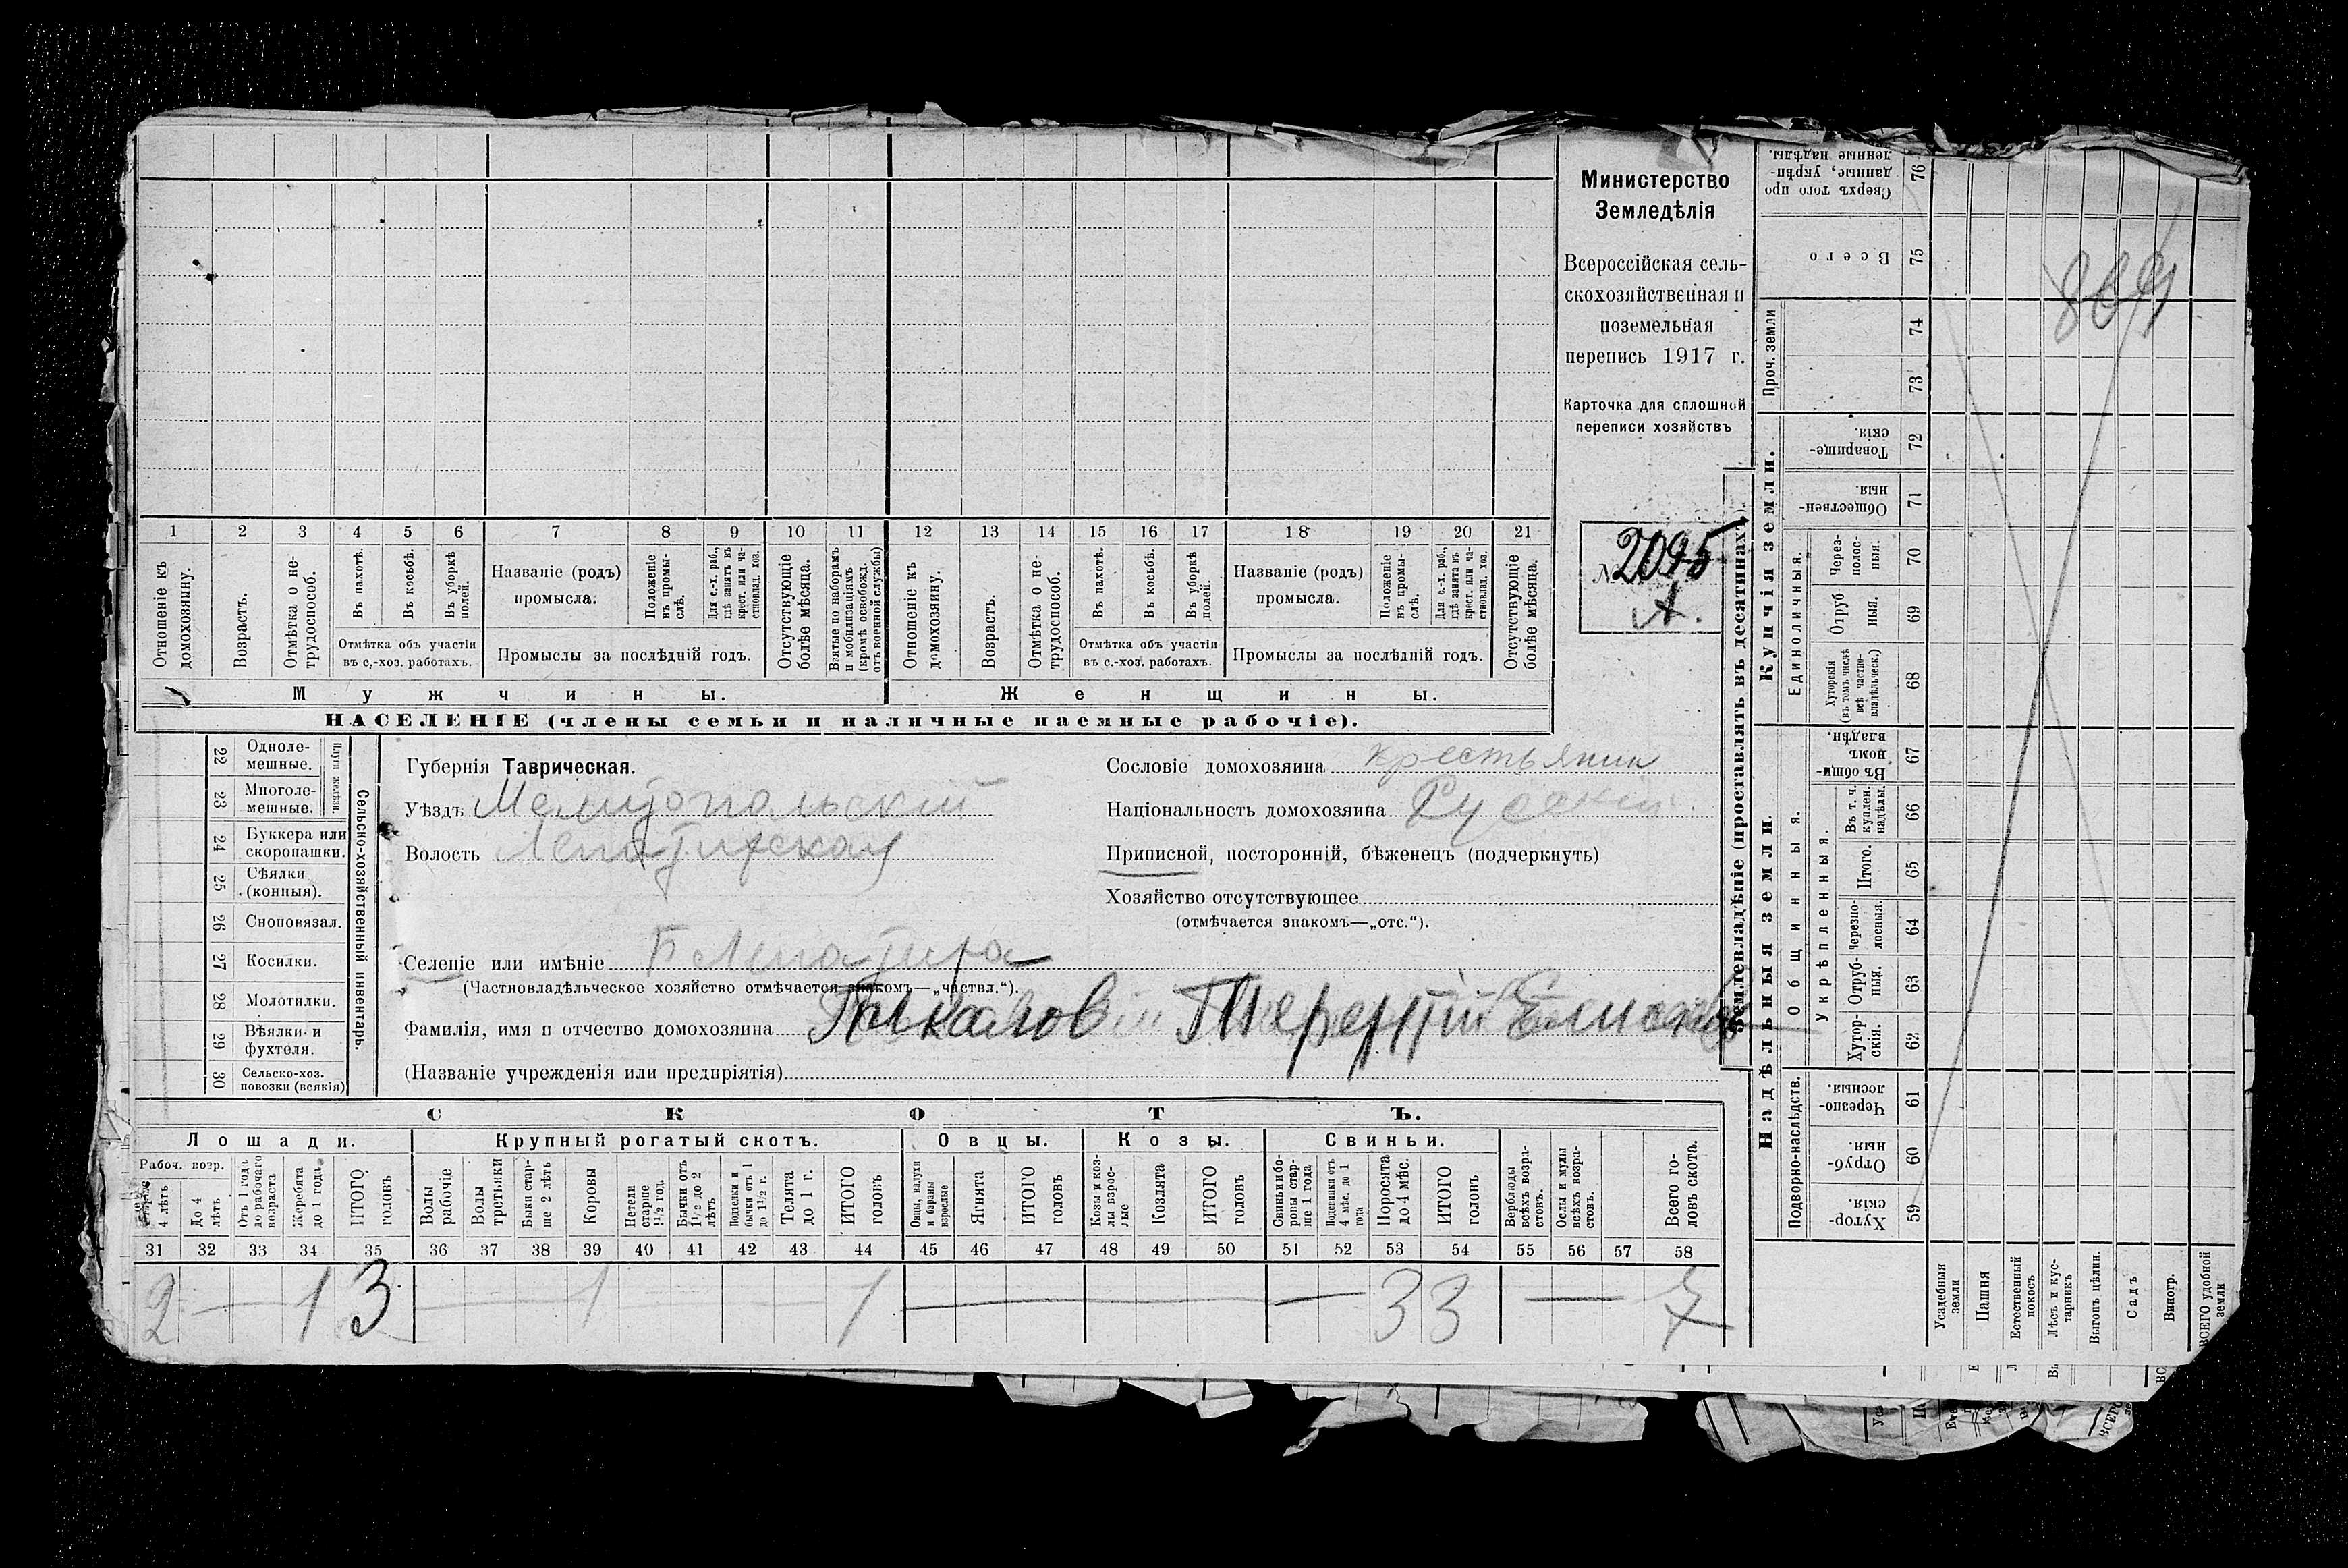 Министерство
Земледѣлія
Всероссійская сель-
скохозяйственная и
поземельная
перепись 1917 г.
Карточка для сплошной
переписи хозяйствъ
№ 2095
А.
1 2 3 4 5 6 7 8 9 10 11 12 13 14 15 16 17 18 19 20 21
Отношеніе къ домохозяину.
Возрастъ.
Отмѣтка о не-трудоспособ.
Въ пахотѣ.
Въ косьбѣ.
Въ уборкѣ полей.
Отмѣтка объ участіи
въ с.-хоз. работахъ.
Названіе (родъ)
промысла.
Положеніе въ промы-слѣ.
Для с.-х. раб., гдѣ занятъ въ крест. или ча-стновлад. хоз.
Промыслы за послѣдній годъ.
Отсутствующіе болѣе мѣсяца.
Взятые по наборамъ и мобилизаціямъ (кромѣ освобожд. отъ военной службы)
Отношеніе къ домохозяину.
Возрастъ.
Отмѣтка о не-трудоспособ.
Въ пахотѣ.
Въ косьбѣ.
Въ уборкѣ полей.
Отмѣтка объ участіи
въ с.-хоз. работахъ.
Названіе (родъ)
промысла.
Положеніе въ промы-слѣ.
Для с.-х. раб., гдѣ занята въ крест. или ча-стновлад. хоз.
Промыслы за послѣдній годъ.
Отсутствующіе болѣе мѣсяца.
Мужчины.
Женщины.
НАСЕЛЕНІЕ (члены семьи и наличные наемные рабочіе).
22 Одноле-мешные.
23 Многоле-мешные.
Плуги желѣзн.
24 Буккера или скоропашки.
25 Сѣялки (конныя).
26 Сноповязал.
27 Косилки.
28 Молотилки.
29 Вѣялки и фухтеля.
30 Сельско-хоз. повозки (всякія)
Сельско-хозяйственный инвентарь.
Губернія Таврическая.
Уѣздъ Мелитопольскій
Волость
Селеніе или имѣніе
(Частновладѣльческое хозяйство отмѣчается знакомъ—„частвл.“).
Фамилія, имя и отчество домохозяина Пыкалов Терентій
(Названіе учрежденія или предпріятія)
Сословіе домохозяина крестьянин
Національность домохозяина Русскій
Приписной, посторонній, бѣженецъ (подчеркнуть)
Хозяйство отсутствующее
(отмѣчается знакомъ—„отс.“).
СКОТЪ.
Лошади. Крупный рогатый скотъ. Овцы. Козы. Свиньи.
Рабоч. возр.
4 лѣтъ
До 4 лѣтъ
Отъ 1 года до рабочаго возраста
Жеребята до 1 года
ИТОГО головъ
Волы рабочіе
Волы третьяки
Быки стар-ше 2 лѣтъ
Коровы
Нетели старше 1½ год.
Бычки отъ 1½ до 2 лѣтъ
Подтелки и бычки отъ 1 до 1½ г.
Телята до 1 г.
ИТОГО головъ
Овцы, валухи и бараны взрослые
Ягнята
ИТОГО головъ
Козы и коз-лы взрос-лые
Козлята
ИТОГО головъ
Свиньи и бо-ровы стар-ше 1 года
Подсвинки отъ 4 мѣс. до 1 года
Поросята до 4 мѣс.
ИТОГО головъ
Верблюды всѣхъ возра-стовъ.
Ослы и мулы всѣхъ возра-стовъ.
Всего го-ловъ скота.
31 32 33 34 35 36 37 38 39 40 41 42 43 44 45 46 47 48 49 50 51 52 53 54 55 56 57 58
2 — 1 3 — 1 — 1 — — 3 3 — 7
Землевладѣніе (проставлять въ десятинахъ).
Купчія земли.
Надѣльныя земли.
Проч. земли
Единоличныя.
Общинныя.
Укрѣпленныя.
Подворно-наслѣдств.
76 Сверхъ того про данные, укрѣп-ленные надѣлы.
75 Всего
74
73
72 Товарище-скія.
71 Обществен-ныя.
70 Через-полос-ныя.
69 Отруб ныя.
68 Хуторскія (въ томъ числѣ всѣ частно-владѣльческ.)
67 Въ общи-номъ владѣн.
66 Въ т. ч. куплен. надѣлы.
65 Итого.
64 Черезпо-лосныя.
63 Отруб-ныя.
62 Хутор-скія.
61 Черезпо-лосныя.
60 Отруб-ныя.
59 Хутор-скія.
Усадебныя земли
Пашня
Естественный покосъ
Лѣсъ и кус-тарникъ
Выгонъ цѣлин.
Садъ
Виногр.
ВСЕГО удобной земли